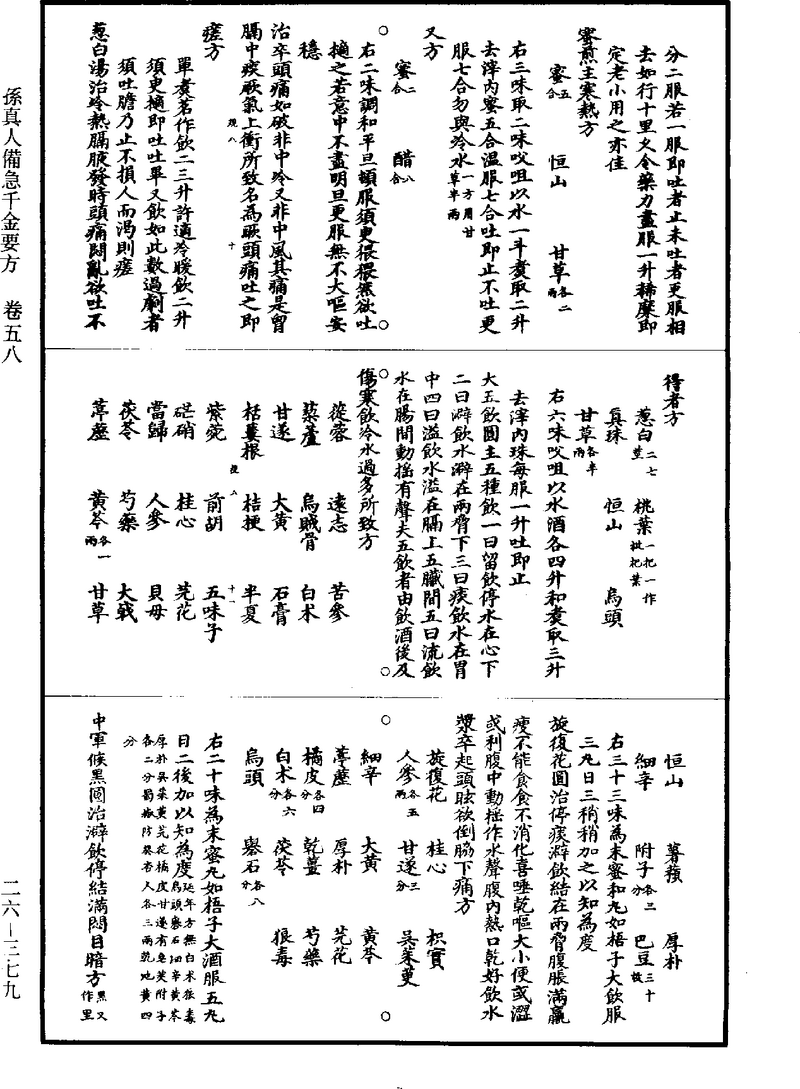 孫真人備急千金要方　卷五八
二六—三七九
分二服若一服即吐者止未吐者更服相
去如行十里久令藥力盡服一升稀糜即
定老小用之亦佳
蜜煎主寒熱方
蜜五合　恒山　甘草各二兩
右三味取二味㕮咀以水一斗煑取二升
去滓内蜜五合温服七合吐即止不吐更
服七合勿與冷水一方用甘草半兩
又方
蜜二合　醋八合
右二味調和平旦頓服須更猥猥然欲吐
擿之若意中不盡明旦更服無不大嘔安
穩
治卒頭痛如破非中冷又非中風其痛是胷
膈中痰厥氣上衝所致名為厥頭痛吐之即
瘥方
單煑茗作飲二三升許適冷暖飲二升
須臾擿即吐吐畢又飲如此數過劇者
須吐膽乃止不損人而渴則瘥
葱白湯治冷熱膈痰發時頭痛悶亂欲吐不
得者方
葱白二七莖　桃葉一把一作枇杷葉
真珠　恒山　烏頭
甘草各半兩
右六味㕮咀以水酒各四升和煑取三升
去滓内珠每服一升吐即止
大五飲圓主五種飲一曰留飲停水在心下
二曰澼飲水澼在兩脅下三曰痰飲水在胃
中四曰溢飲水溢在膈上五臟間五曰流飲
水在腸間動揺有聲夫五飲者由飲酒後及
傷寒飲冷水過多所致方
蓯蓉　遠志　苦參
藜蘆　烏賊骨　白术
甘遂　大黄　石膏
栝蔞根　桔梗　半夏
紫菀　前胡　五味子
芒硝　桂心　芫花
當歸　人參　貝母
茯苓　芍藥　大戟
葶藶　黄芩各一兩　甘草
恒山　薯蕷　厚朴
細辛　附子各三分　巴豆三十枚
右三十三味為末蜜和丸如梧子大飲服
三丸日三稍稍加之以知為度
旋復花圓治停痰澼飲結在兩脅腹脹滿羸
瘦不能食食不消化喜唾乾嘔大小便或澀
或利腹中動揺作水聲腹内熱口乾好飲水
漿卒起頭眩欲倒脇下痛方
旋復花　桂心　枳實
人參各五兩　甘遂三分　呉茱萸
細辛　大黄　黄芩
葶藶　厚朴　芫花
橘皮各四分　乾薑　芍藥
白术各六分　茯苓　狼毒
烏頭　礜石各八
右二十味為末蜜丸如梧子大酒服五丸
日二後加以知為度延年方無白术狼毒烏頭礜石細辛黄芩厚朴呉茱萸芫花橘皮甘遂有皂莢附子各二分蜀椒防葵杏人各三兩乾地黄四分
中軍候黑圓治澼飲停結滿悶目暗方黑又作里